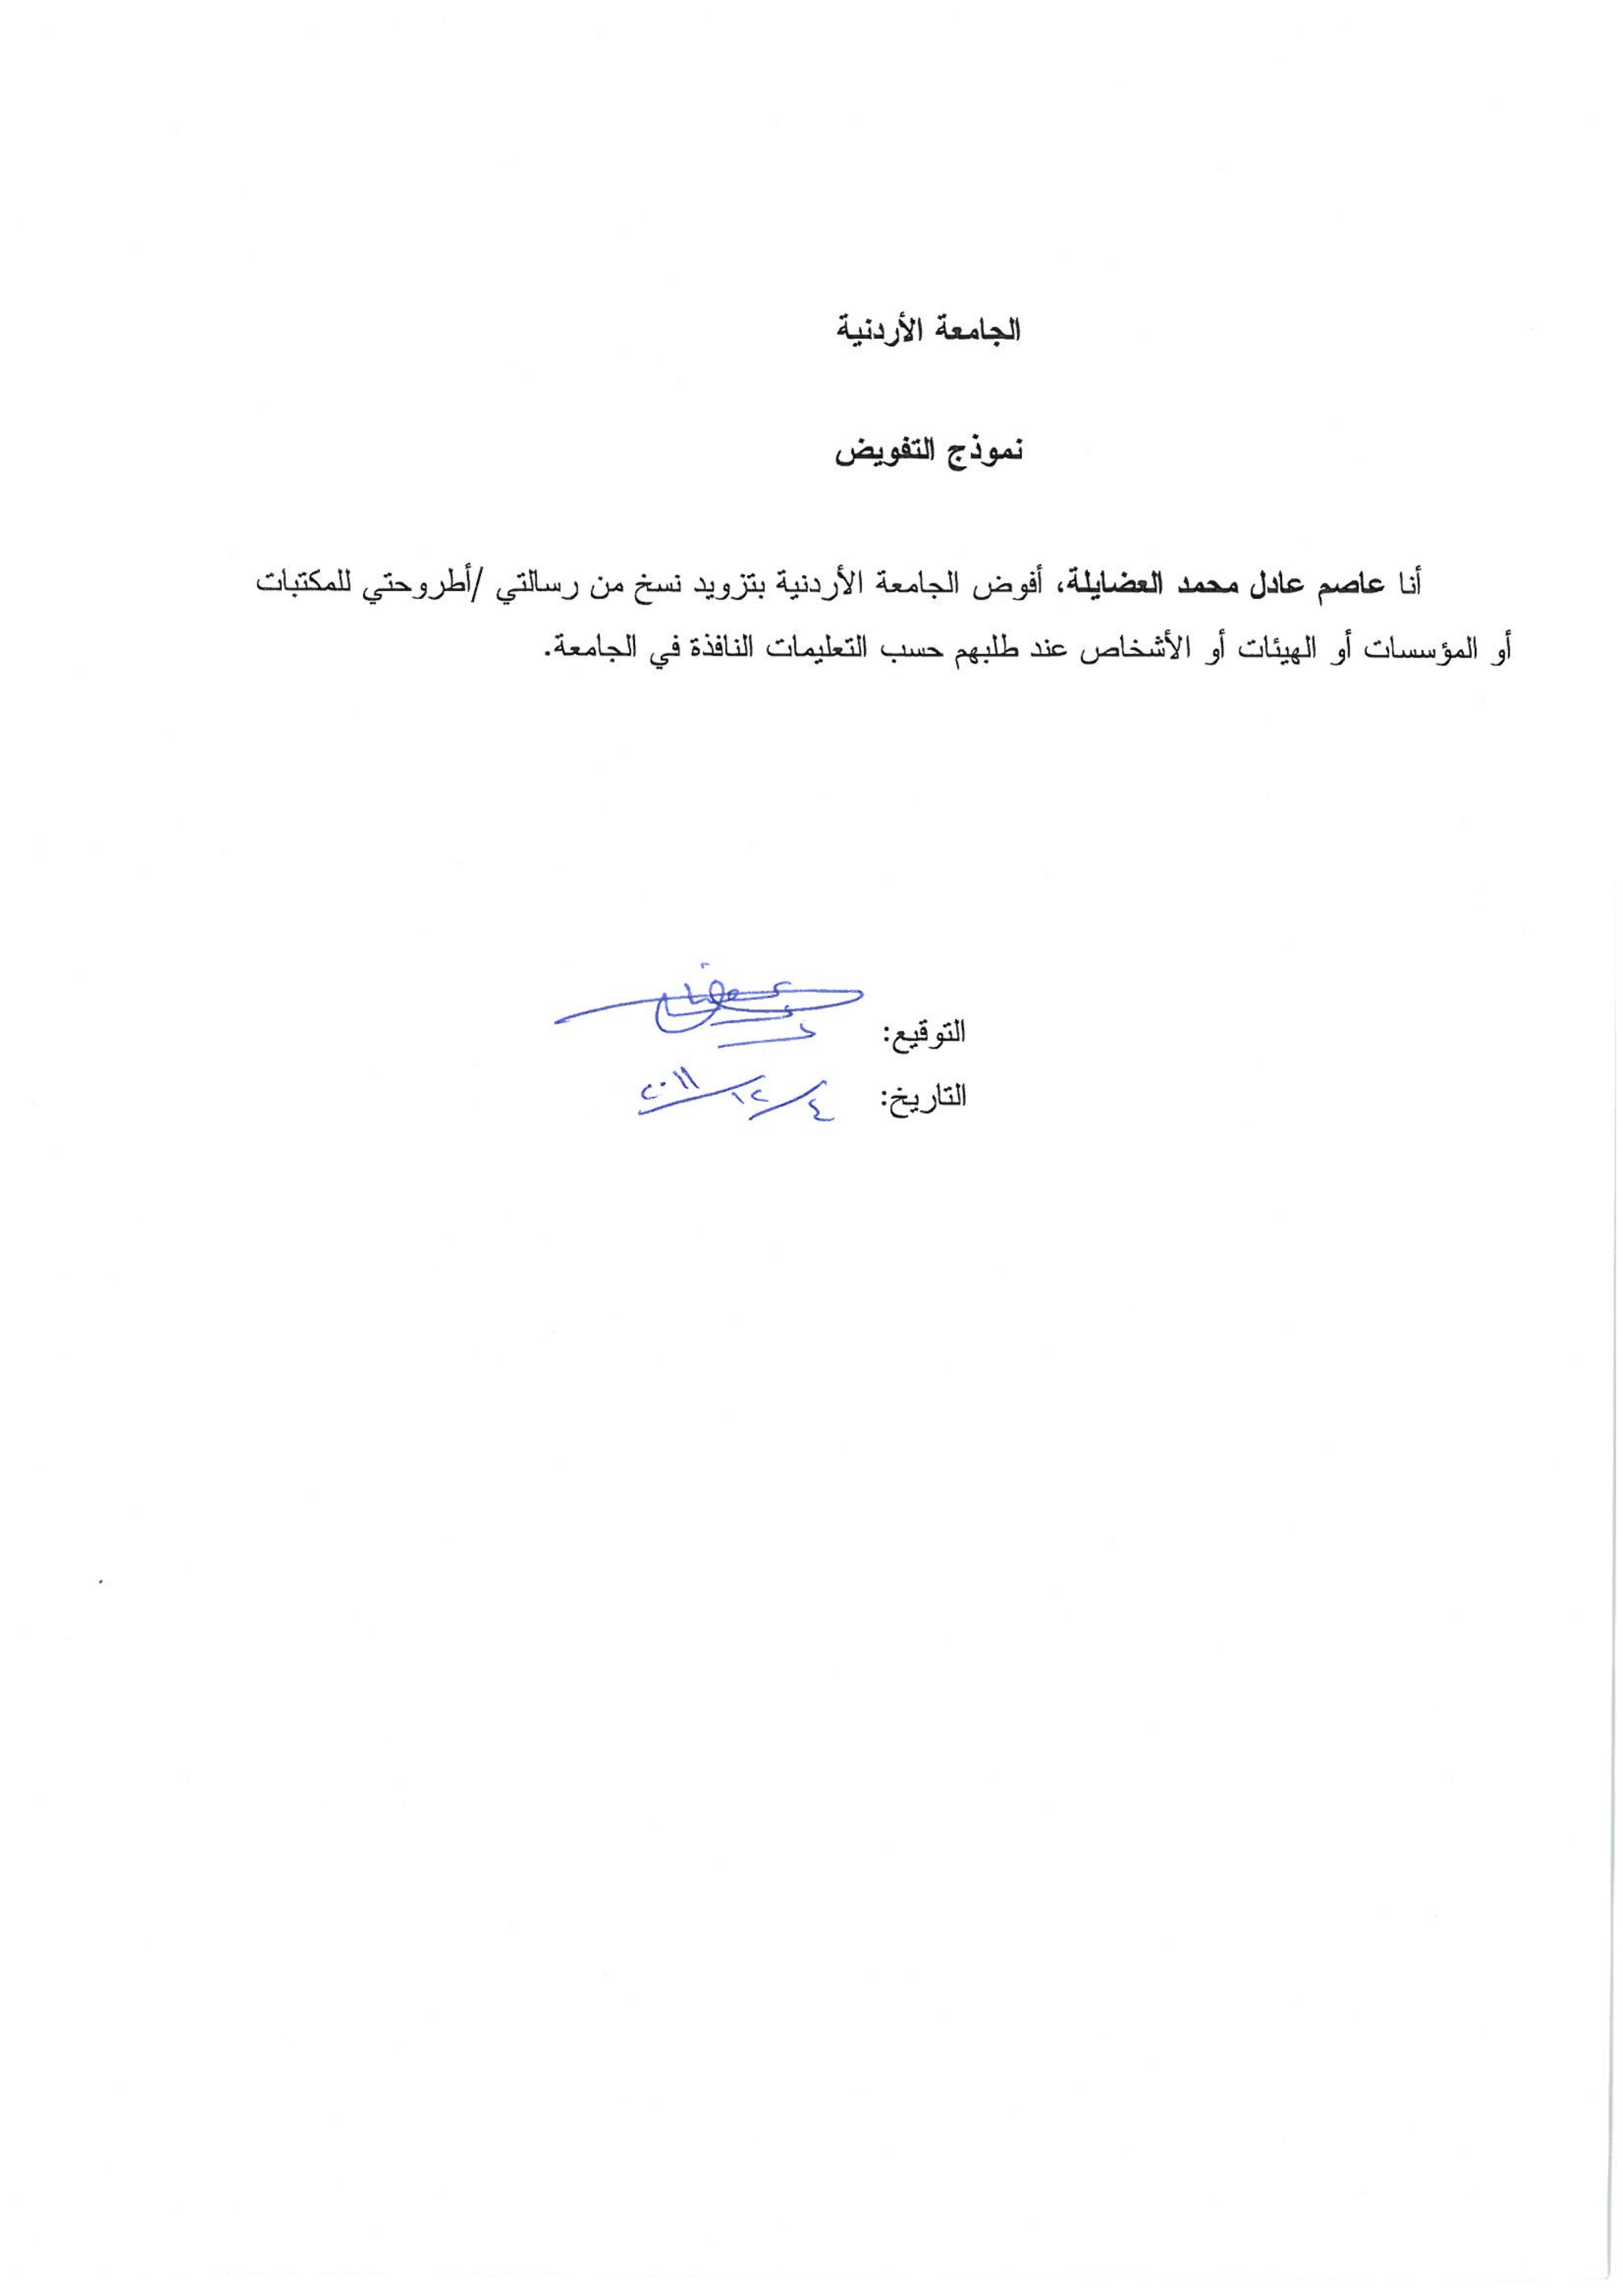 الجامعة الأردنية
نموذج التفويض
أنا عاصم عادل محمد العضايلة، أفوض الجامعة الأردنية بتزويد نسخ من رسالتي /أطروحتي للمكتبات
أو المؤسسات أو الهيئات أو الأشخاص عند طلبهم حسب التعليمات النافذة في الجامعة.
التوقيع:
التاريخ: ٤/١٢/٢٠١١